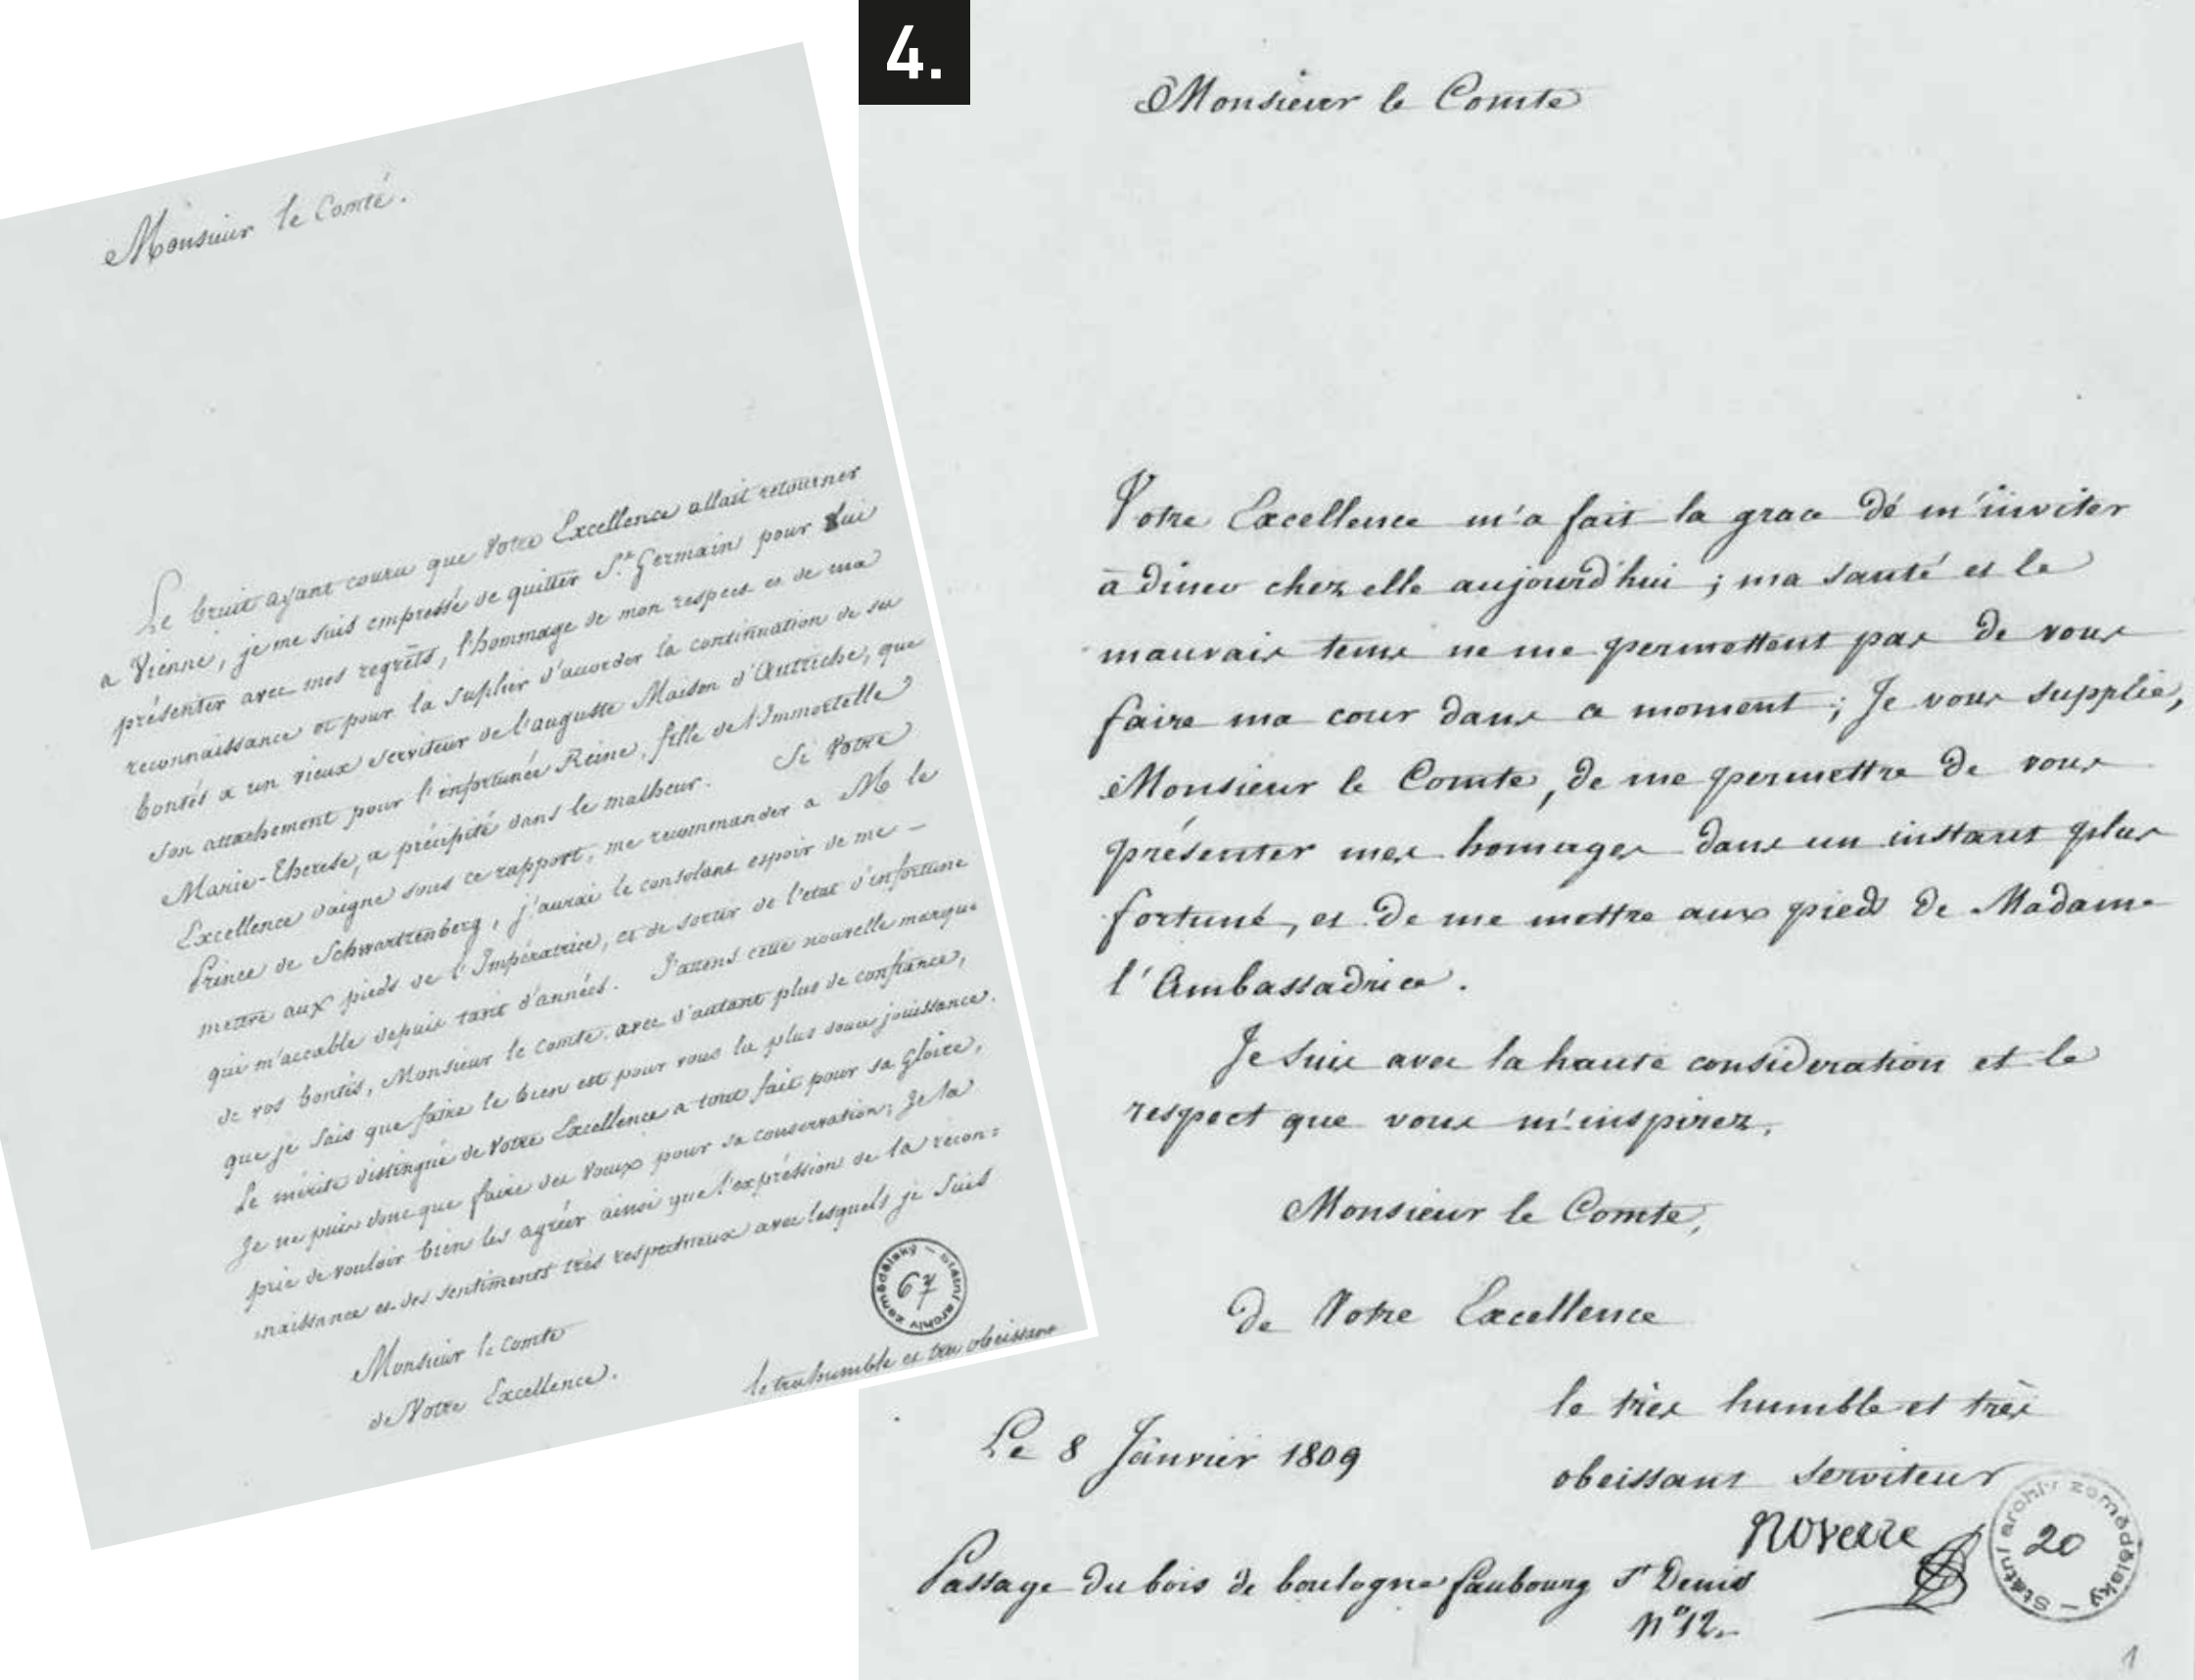 Monsieur le Comte.
Le bruit ayant couru que Votre Excellence allait retourner
a Vienne, je me suis empressé de quitter St. Germain pour lui
présenter avec mes regrèts, l'hommage de mon respect et de ma
reconnaissance et pour la suplier d'acorder la continuation de ses
bontés a un vieux serviteur de l'auguste Maison d'Autriche, que
son attachement pour l'infortunée Reine, fille de l'Immortelle
Marie-Therese, a précipité dans le malheur. Si Votre
Excellence daigne sous ce rapport, me recommander a M le
Prince de Schwartzenberg, j'aurai le consolant espoir de me -
mettre aux pieds de l'Impératrice, et de sortir de l'etat d'infortune
qui m'accable depuis tant d'années. J'attens cette nouvelle marque
de vos bontés, Monsieur le Comte, avec d'autant plus de confiance,
que je sais que faire le bien est pour vous la plus douce jouissance.
Le mérite distingué de Votre Excellence a tout fait pour sa gloire,
Je ne puis donc que faire des voeux pour sa conservation; Je la
prie de vouloir bien les agréer ainsi que l'expréssion de la recon=
naissance et des sentiments très respectueux avec lesquels je suis
Monsieur le comte
de Votre Excellence.
le tres humble et tres obeissant
Státní archiv zemědělský — 67
4.
Monsieur le Comte
Votre Excellence m'a fait la grace dé m'inviter
à diner chez elle aujourd'hui ; ma santé et le
mauvais tems ne me permettent pas de vous
faire ma cour dans ce moment ; Je vous supplie,
Monsieur le Comte, de me permettre de vous
présenter mes homages dans un instant plus
fortuné, et de me mettre aux pieds de Madame
l'Ambassadrice.
Je suis avec la haute consideration et le
respect que vous m'inspirez,
Monsieur le Comte,
de Votre Excellence
le très humble et très
obeissant serviteur
Noverre
Le 8 Janvier 1809
Passage du bois de boulogne faubourg St Denis
N° 12.
Státní archiv zemědělský — 20
1